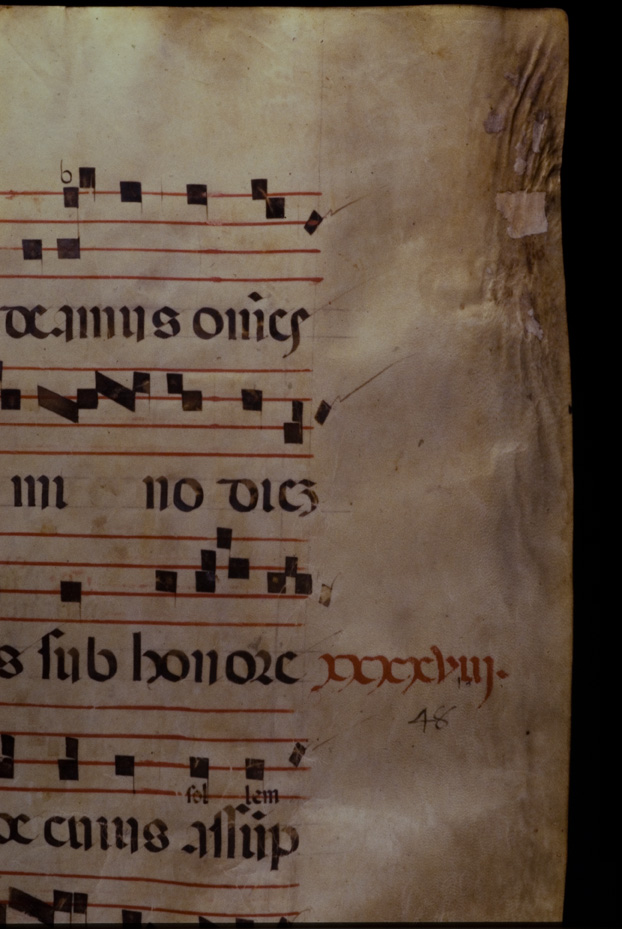 b
deamus om̄es
mi no dieʒ
s ſub honore xxxxviij.
48
ſol lem
de cuius aſſūp